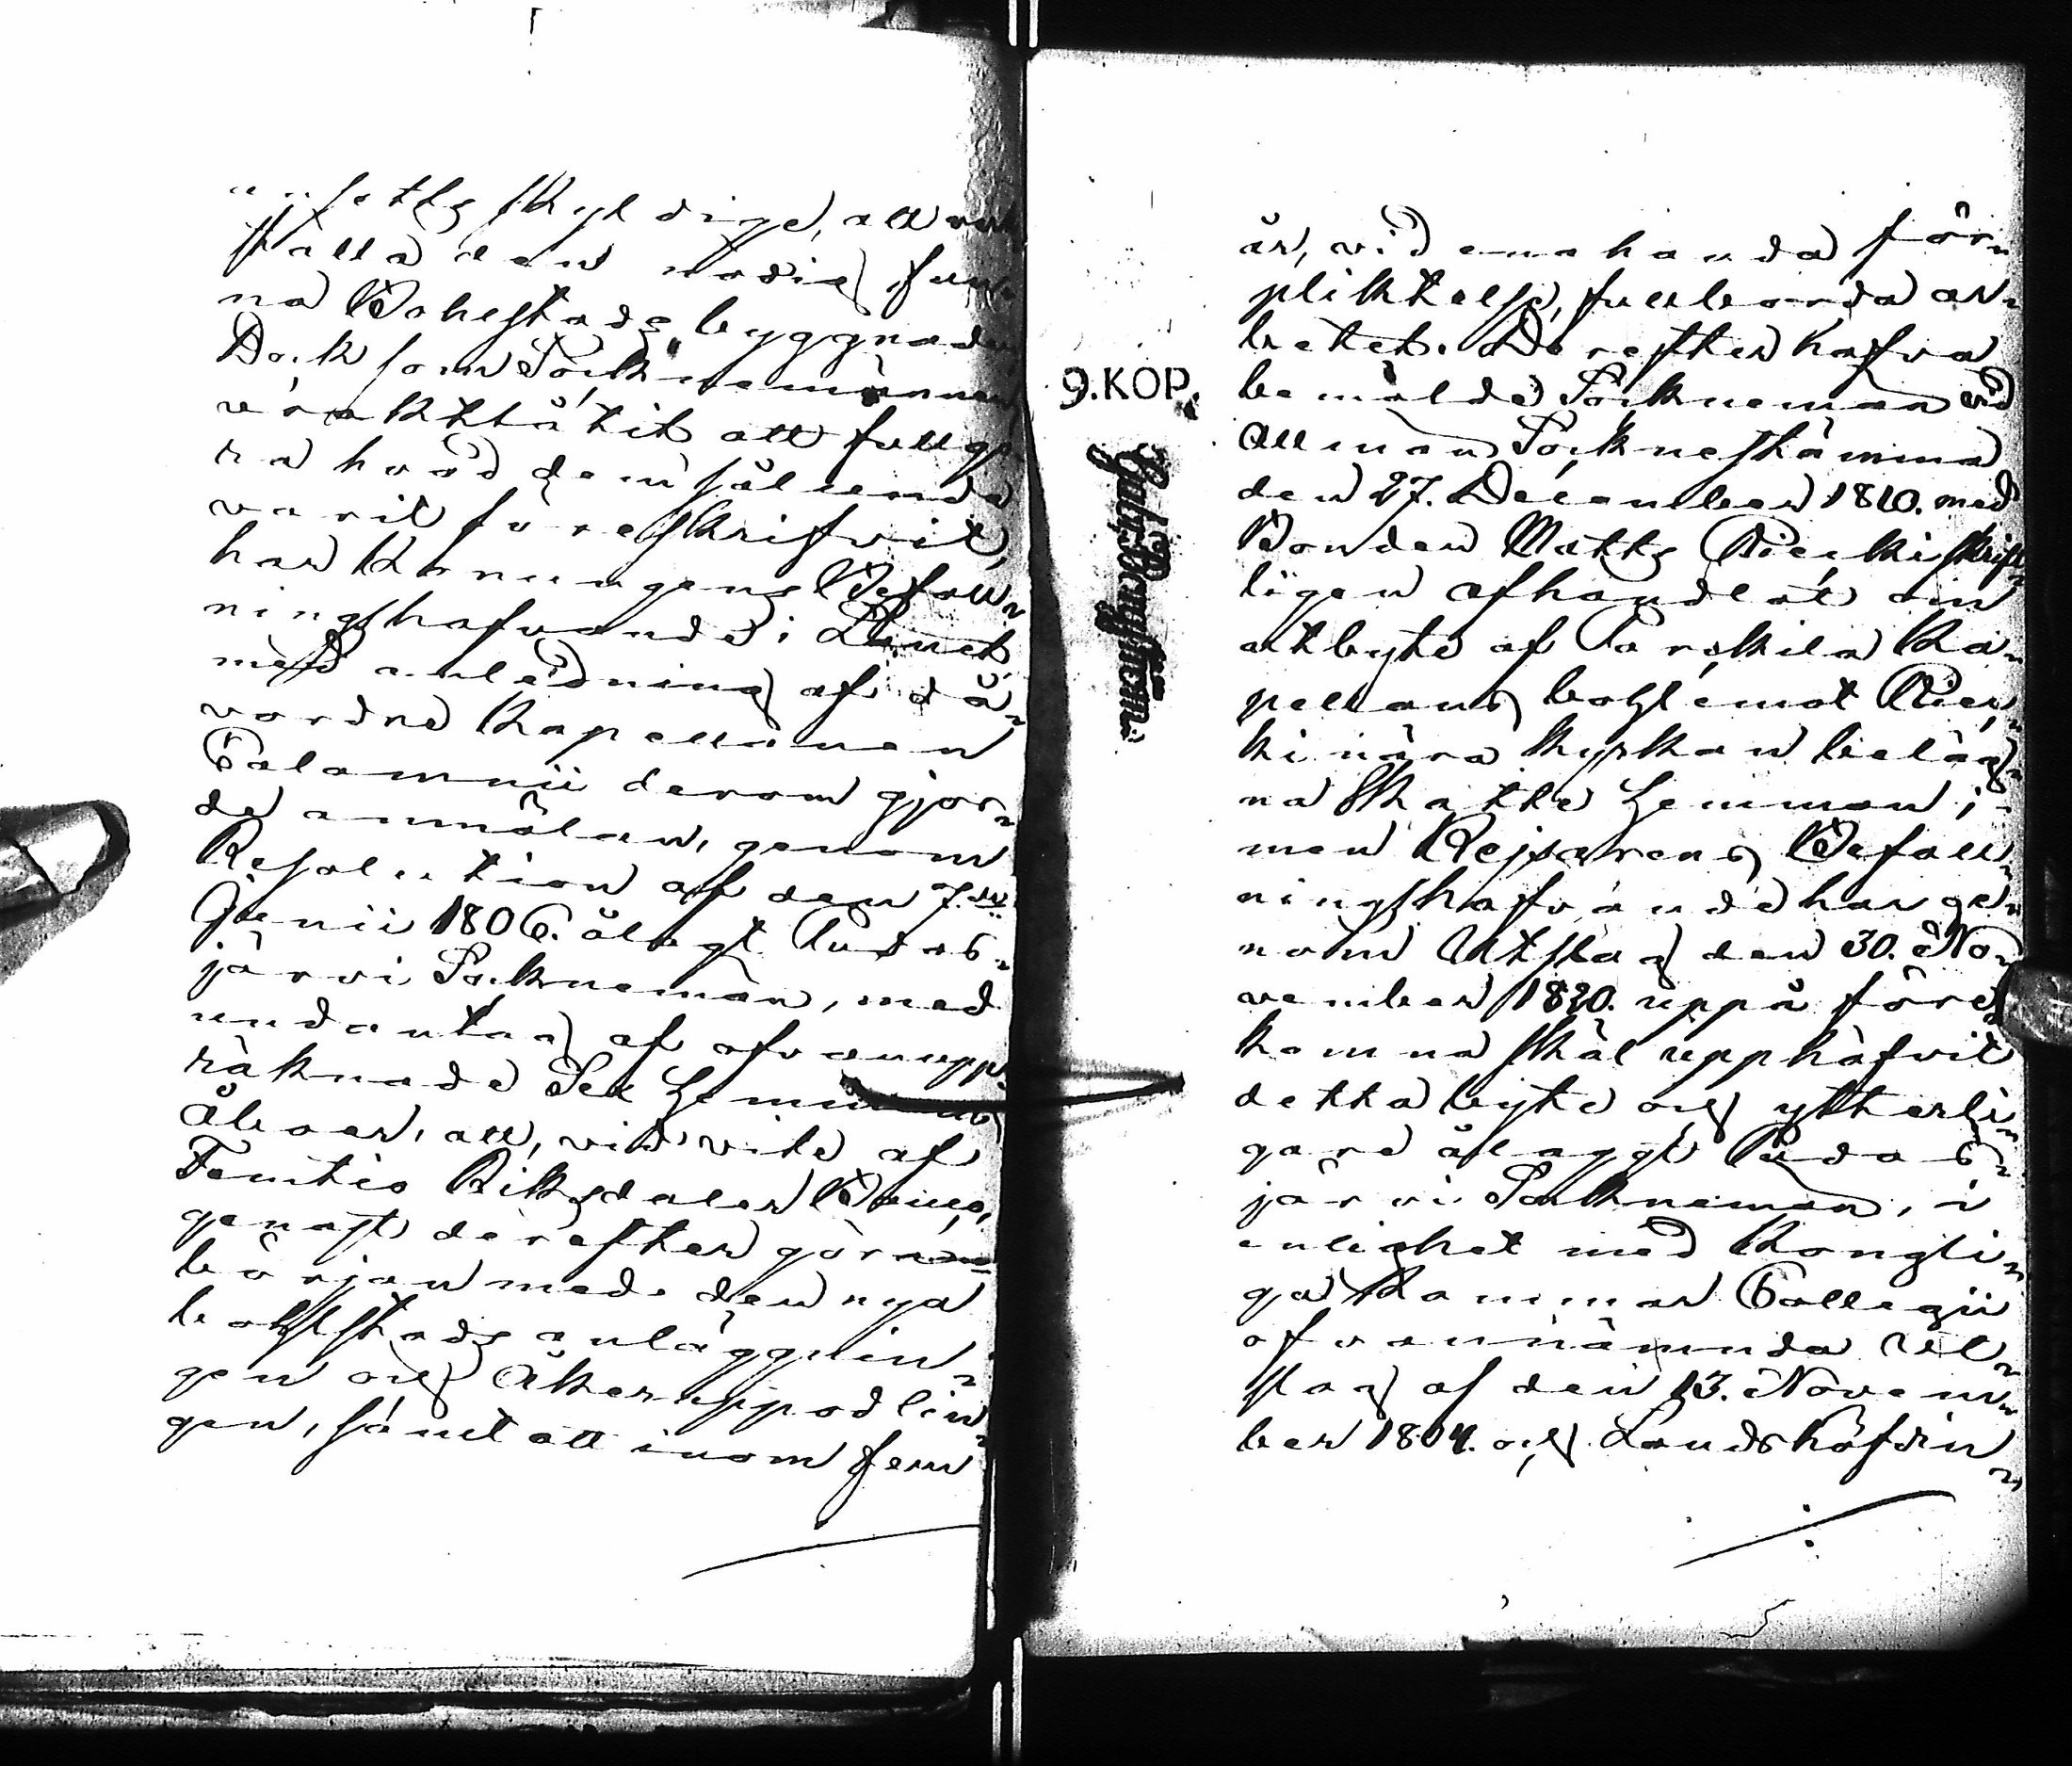 skyldige, att verk
ställa den nödig fun-
na Bohlstads byggnaden
Dock som Socknemännen
uraktlåtit att fullgö-
ra hvad dem sålunda
varit föreskrifvit,
har Konungens Befall-
ningshafvande i Länet,
med anledning af då-
varande Kapellanen
Calamnii derom gjor-
de anmälan, genom
Resolution af den 7.de
Junii 1806. ålagt Pudas-
järvi Sockneman, med
undantag af ofvanupp-
räknade Sex Hemmans
åboer, att, vid vite af
Femtio Riksdaler Banco,
genast derefter göra
början med den nya
bohlstads anläggnin-
gen och Åkeruppodlin-
gen, samt att inom fem
år, vid enahanda för-
pliktelse, fullborda ar-
betet. Derefter hafva
bemälde Sockneman vid
allmän Socknestämma
den 27. December 1810. med
Bonden Matts Riekki skrift-
ligen afhandlat om
utbyte af Taipale Ka-
pellans bohl emot Riek-
ki nära kyrkan beläg-
na Skatte Hemman;
men Kejsarens Befall-
ningshafvande har ge-
nom Utslag den 30. No-
vember 1820. uppå före-
komna skäl upphäfvit
detta byte och ytterli-
gare ålagt Pudas-
järvi Sockneman, i
enlighet med Kongli-
ga Kammar Collegii
ofvannämnda Ut-
slag af den 13. Novem-
ber 1804. och Landshöfdin-
9.KOP.